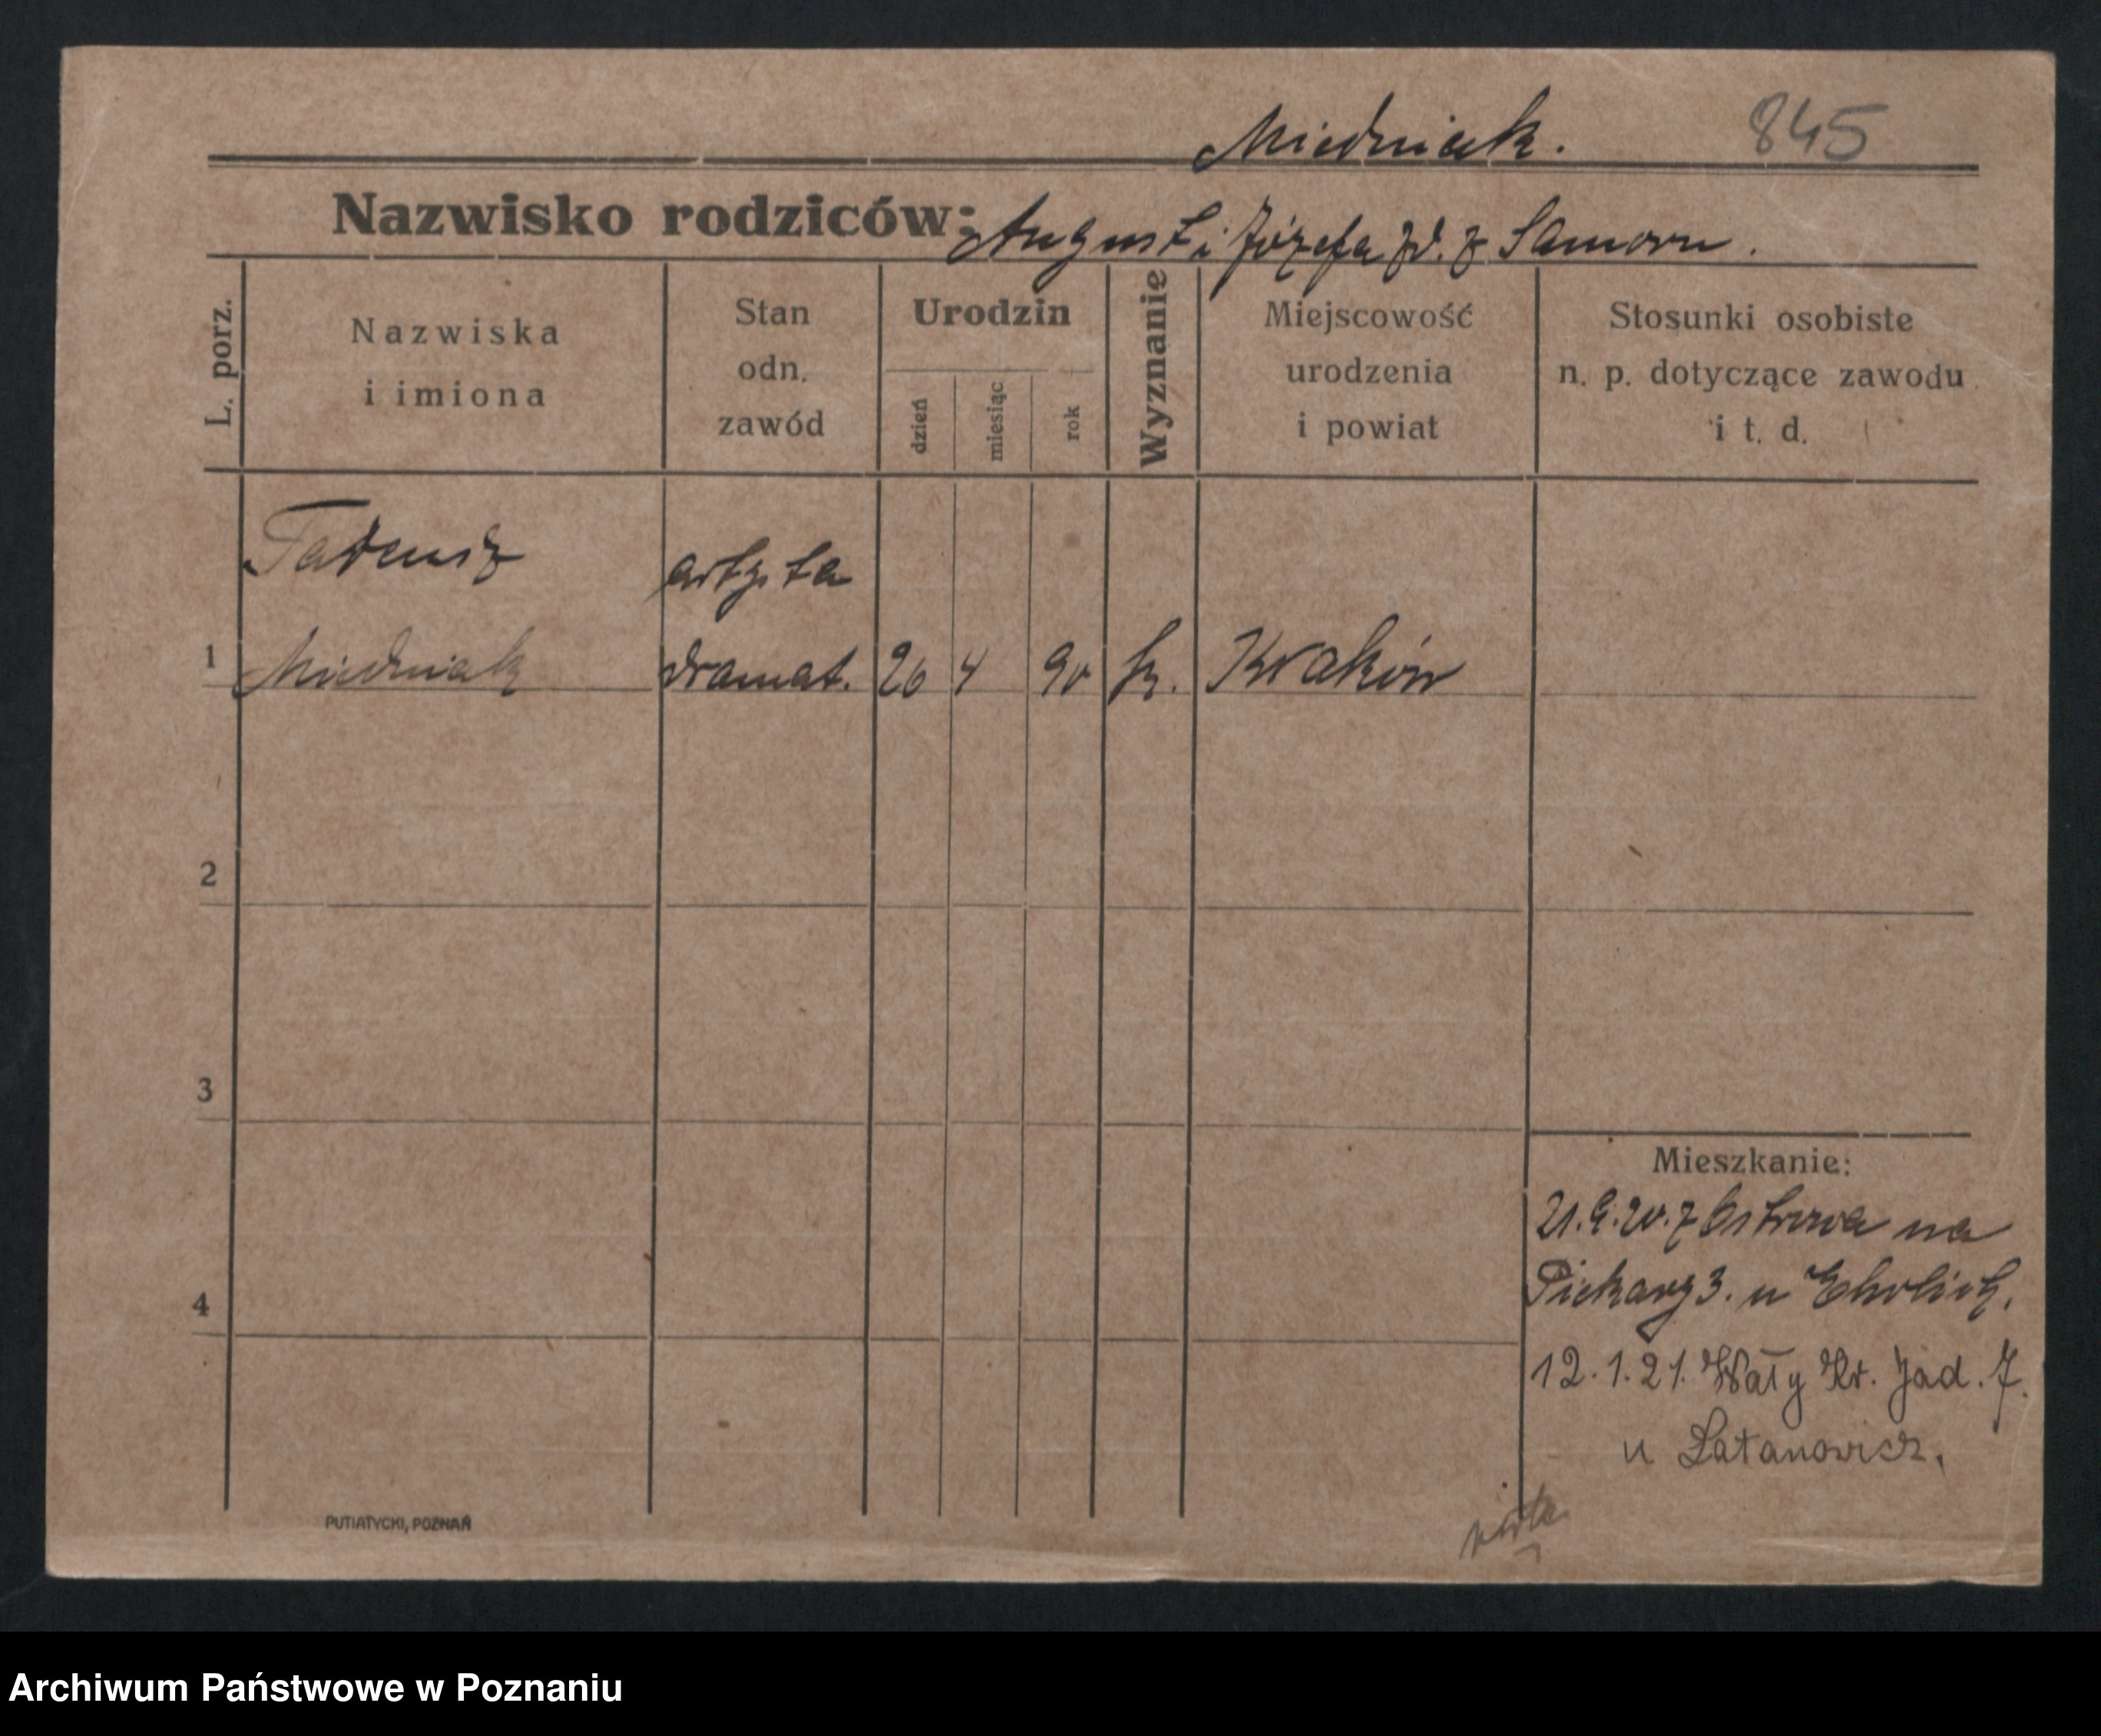 Miedniak. 845
Nazwisko rodziców: August i Józefa zd. z Samoru.
L. porz.
Nazwiska
i imiona
Stan
odn.
zawód
Urodzin
dzień
miesiąc
rok
Wyznanie
Miejscowość
urodzenia
i powiat
Stosunki osobiste
n. p. dotyczące zawodu
i t. d.
Tadeusz artysta
1 Miedniak dramat. 26 4 90 k. Kraków
2
3
4
Mieszkanie:
21.9.20. z Ostrowa na
Piekary 3. u Ehrlich.
12.1.21. Wały Kr. Jad. 7.
u Łatanowicz.
PUTIATYCKI, POZNAŃ
Archiwum Państwowe w Poznaniu